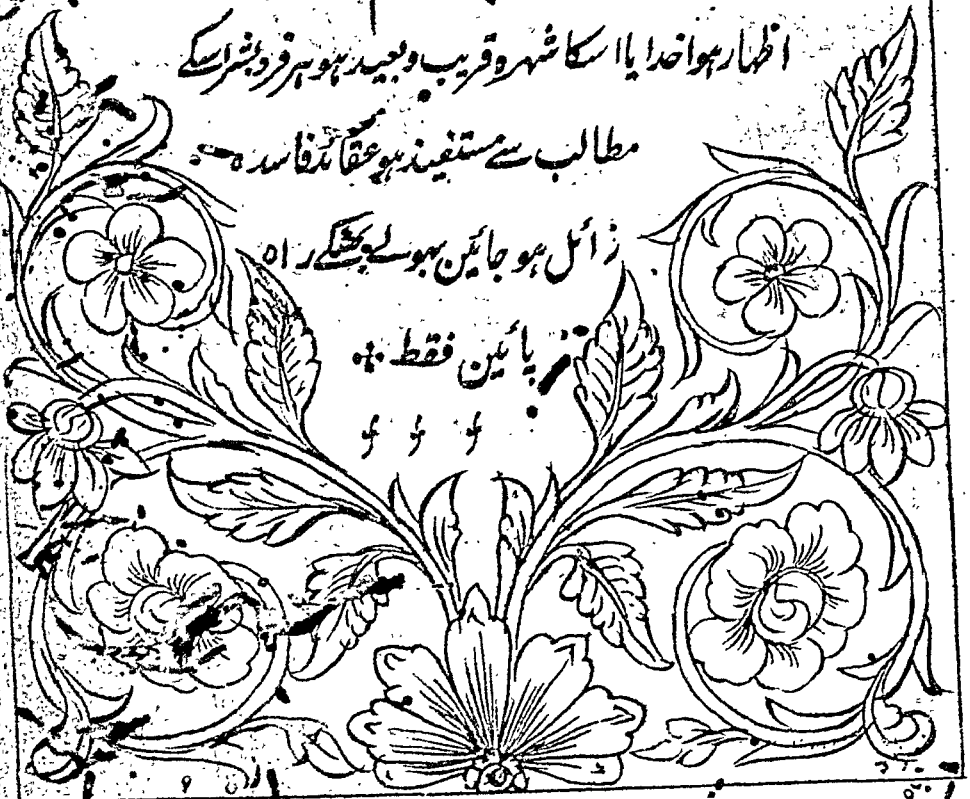 اظہار ہوا خدایا اسکا شہرہ قریب و بعید ہو ہر فرد بشر اسکے
مطالب سے مستفیذ ہو عقائد فاسدہ
زائل ہو جائین بہولے بھٹکے راہ
پائین فقط